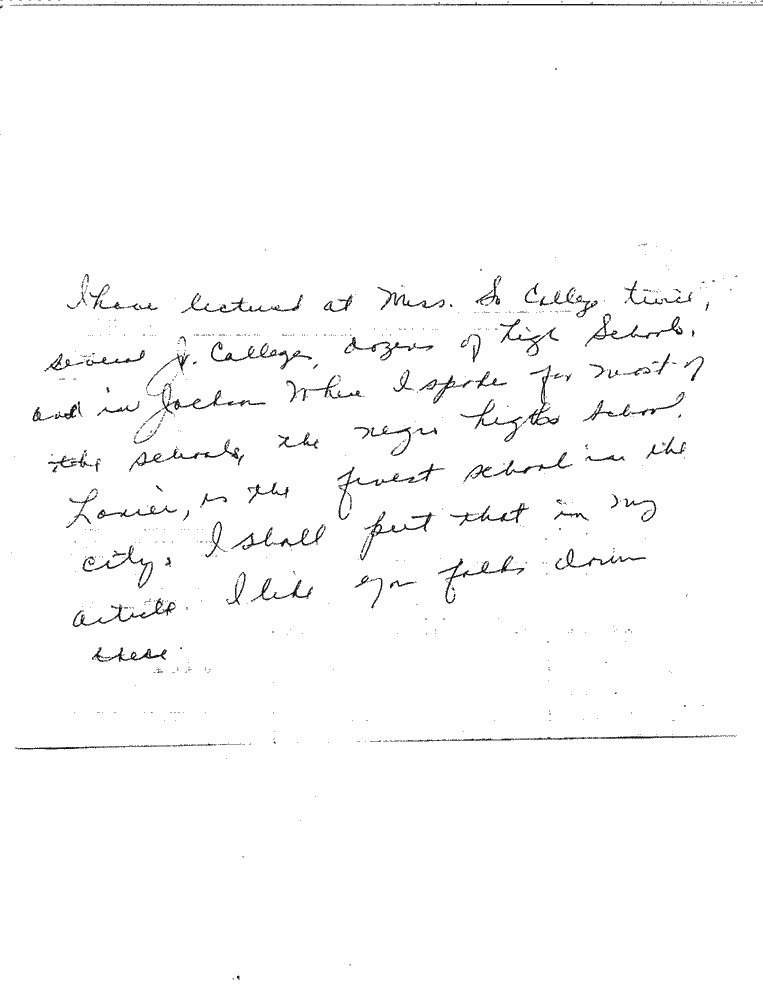 I have lectured at Miss. So College twice,
several Jr. Colleges, dozens of high Schools,
and in Jackson where I spoke for most of
the schools, the negro high School,
Lanier, is the finest school in the
city. I shall put that in my
article. I like you folks down
there.